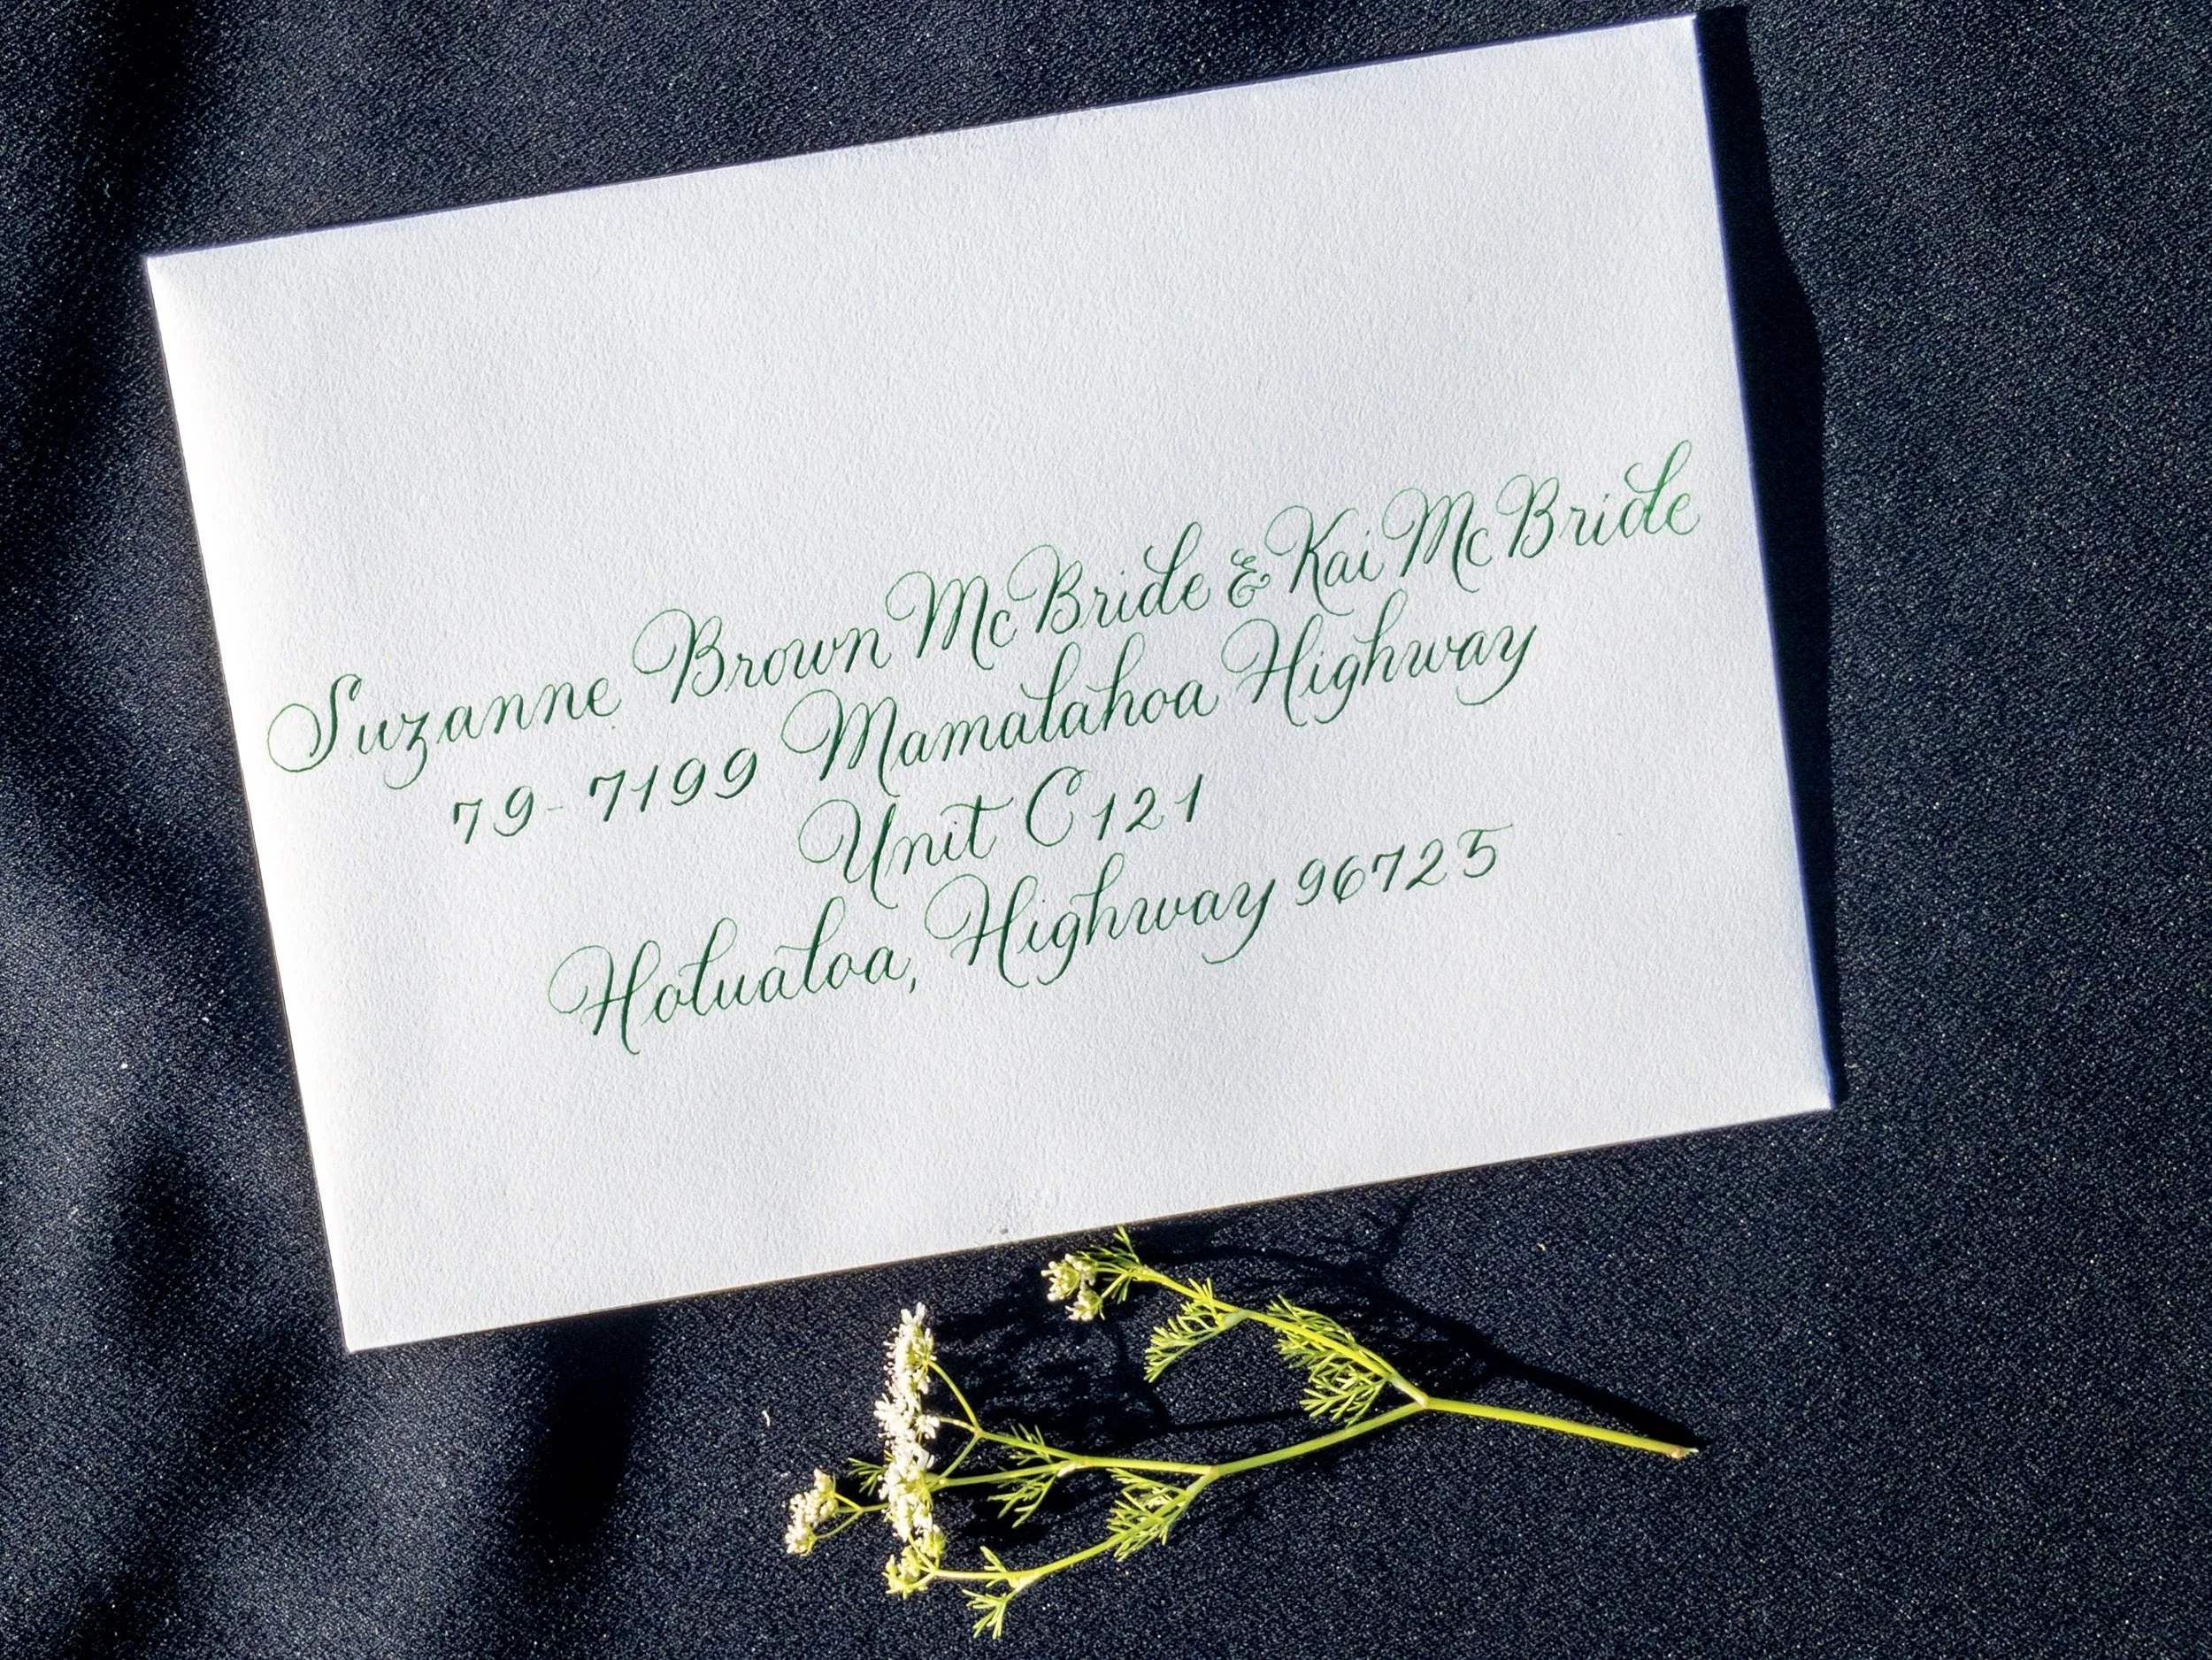 Suzanne Brown McBride & Kai McBride
79-7199 Mamalahoa Highway
Unit C121
Holualoa, Highway 96725